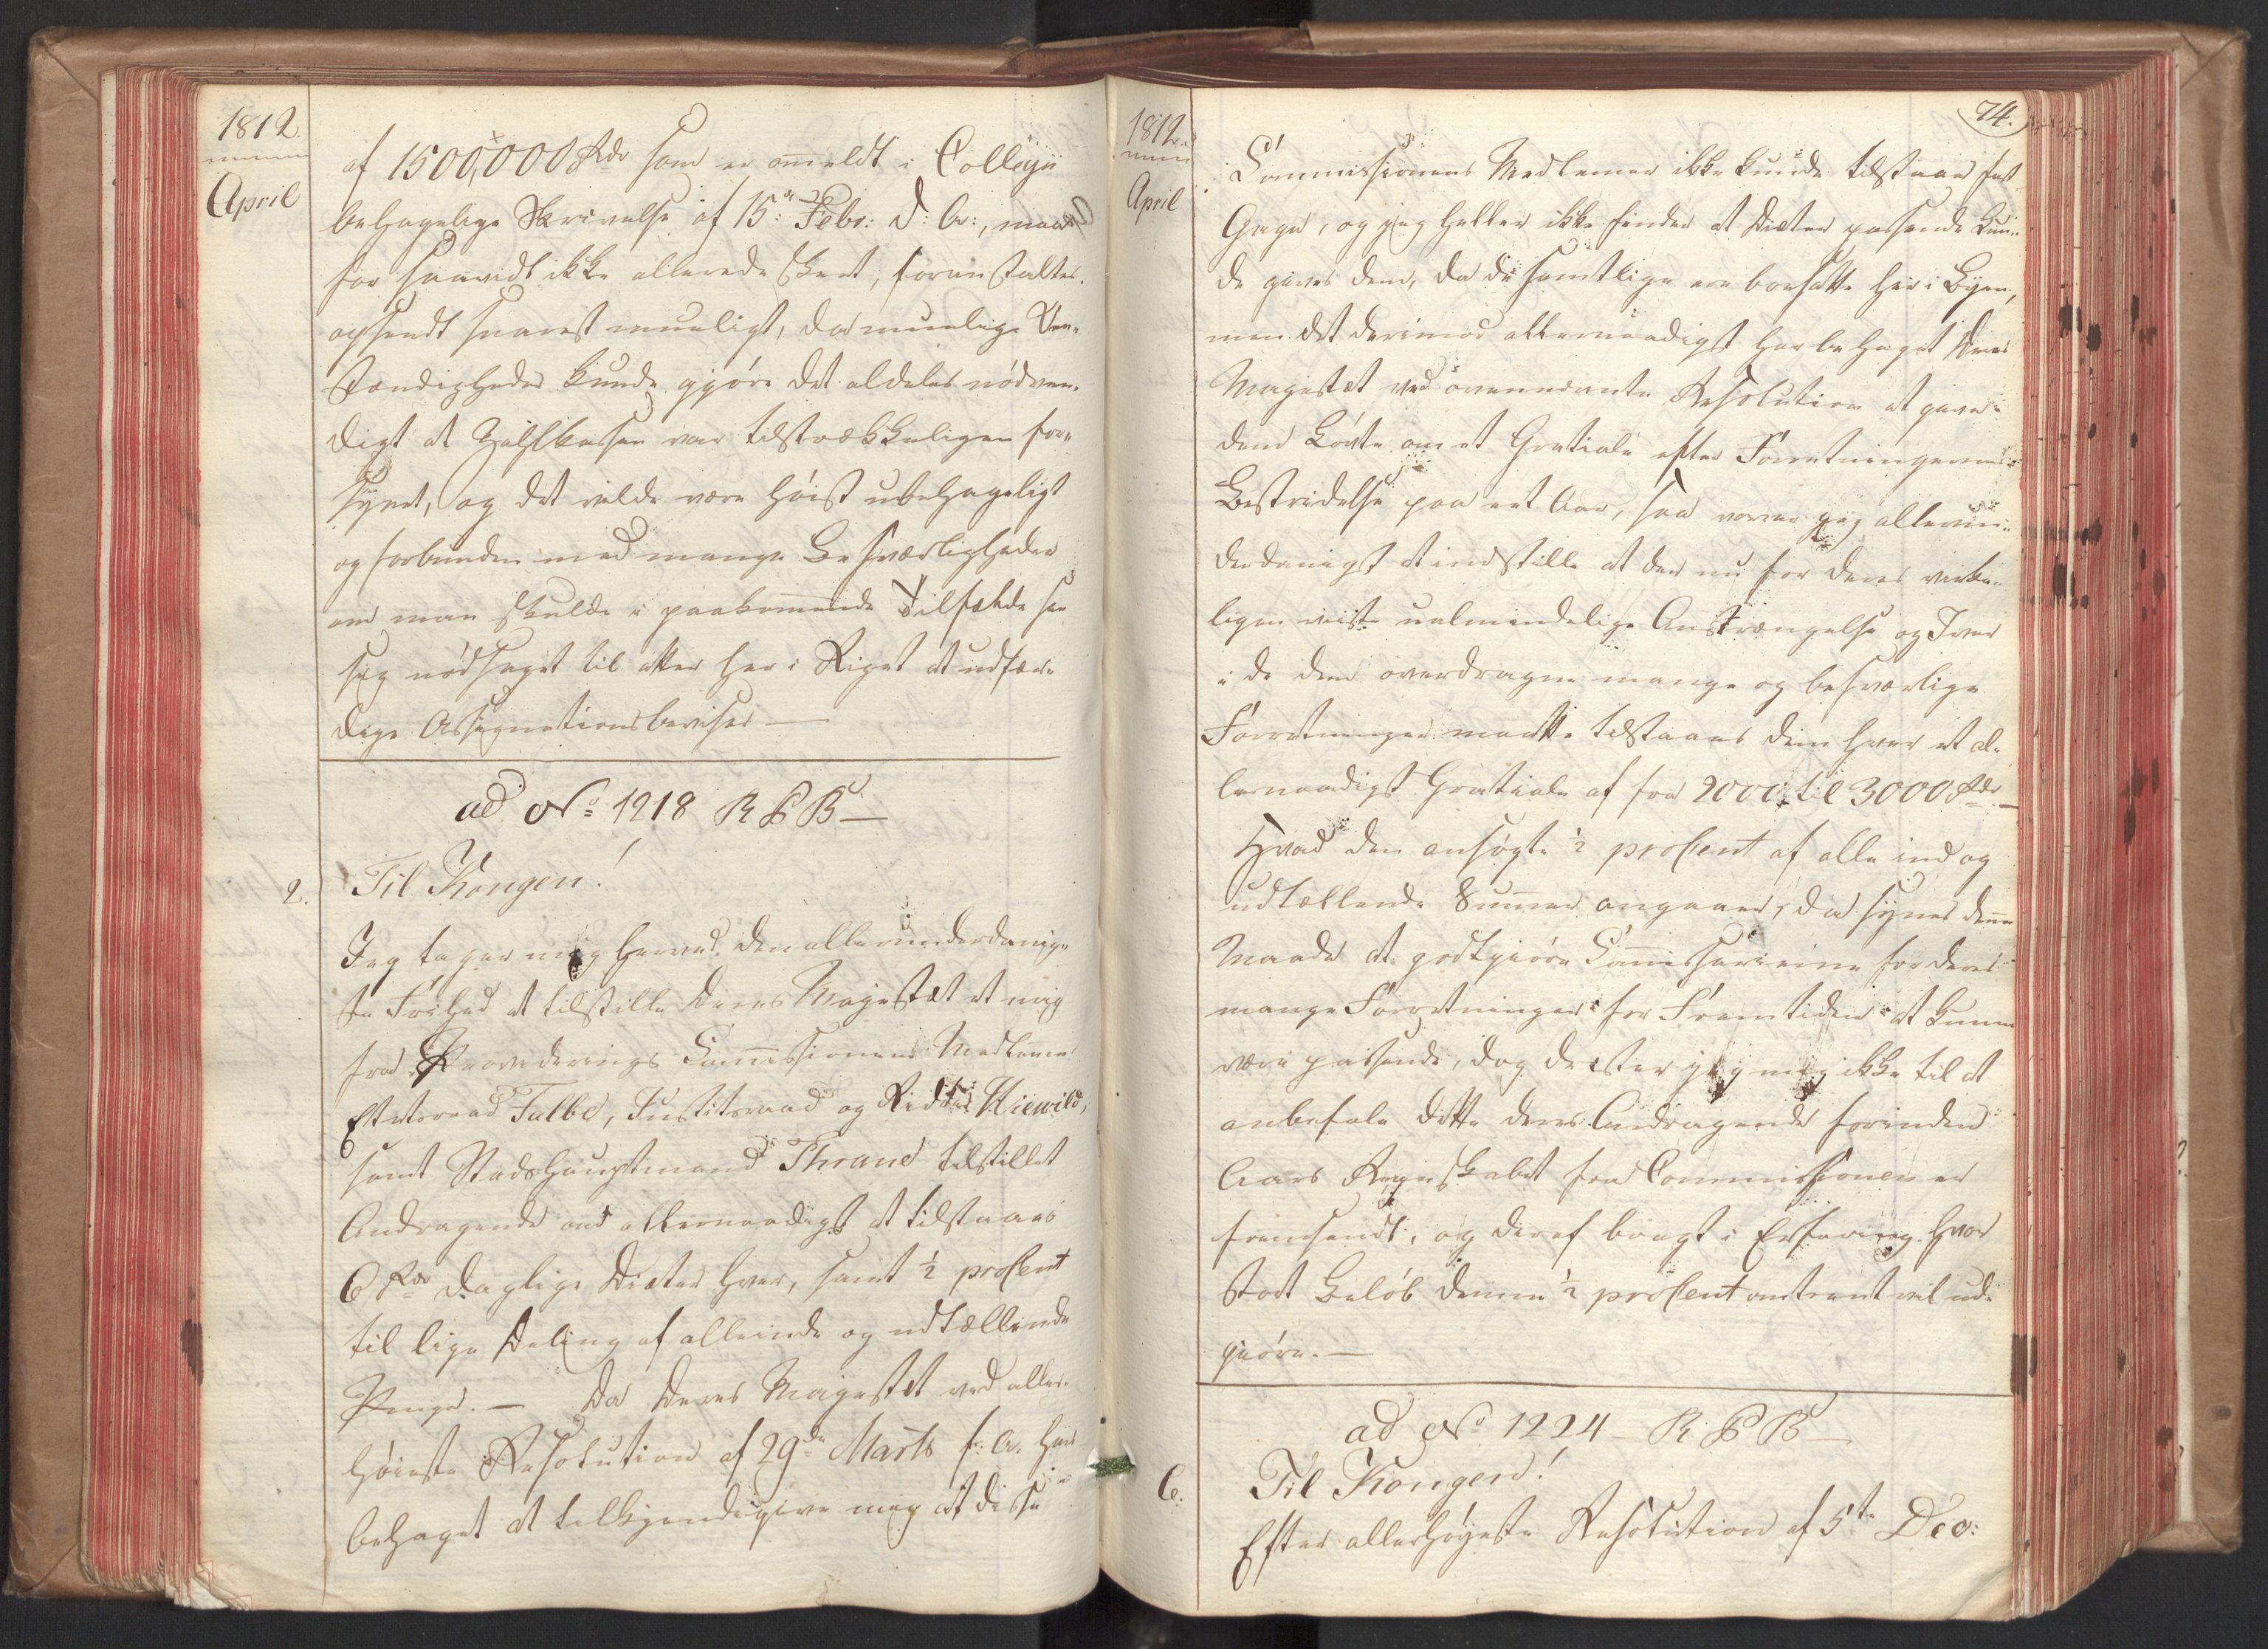 1812
April
af 1500,000 Rdr som er ommeldt i Collegii
behagelige Skrivelse af 15de Febr: d: A:, maae
for saavidt ikke allerede skeet, foranstaltes
opsendt snarest mueligt, da muelige Om-
stændigheder kunde gjøre det aldeles nødven-
digt at Zahlkassen var tilstrækkeligen for-
synet, og det vilde være høist ubehageligt
og forbunden med mange Besværligheder
om man skulde i paakommende Tilfælde see
sig nødsaget til atter her i Riget at udfær-
dige Assignationsbeviser —
ad No 1218 R P B —
2.
Til Kongen!
Jeg tager mig herved den allerunderdanig-
ste Frihed at tilstille Deres Majestæt et mig
fra Provederings Commissionens Medlemmer
Etatsraad Falbe, Justitsraad og Ridder Kiewild,
samt Stadshauptmand Thrane tilstillet
Andragende om allernaadigst at tilstaaes
6 Rdr daglige Diæter hver, samt ½ proCent
til lige Deling af alle inde og udtællende
Penge. — Da Deres Majestæt ved aller-
høieste Resolution af 29de Marts f: A. har
behaget at tilkjendegive mig at disse
1812.
April
74.
Commissionens Medlemmer ikke kunde tilstaaes fast
Gage, og jeg heller ikke finder at Diæter passende kun-
de gives dem, da de samtlige ere bosatte her i Byen,
men det derimod allernaadigst har behaget Deres
Majestæt ved ovennævnte Resolution at give
dem Løvte om et Gratiale efter Forretningernes
Bestridelse paa eet Aar, saa vover jeg allerun-
derdanigst at indstille at der nu for deres virke-
ligen viiste ualmindelige Anstrængelse og Iver
i de dem overdragne mange og besværlige
Forretninger maatte tilstaaes dem hver et al-
lernaadigst Gratiale af fra 2000 til 3000 Rdr —
Hvad den ansøgte ½ proCent af alle ind og
udtællende Summer angaaer, da synes denne
Maade at godtgiøre Commissarierne for deres
mange Forretninger for Fremtiden at kunne
være passende, dog drister jeg mig ikke til at
anbefale dette deres Andragende forinden
Aars Regnskabet fra Commissionen er
fremsendt, og deraf bragt i Erfaring hvor
stort Beløb denne ½ proCent omtrent vil ud-
giøre. —
ad No 1224 — R P B —
6.
Til Kongen!
Efter allerhøyeste Resolution af 5te Dec: